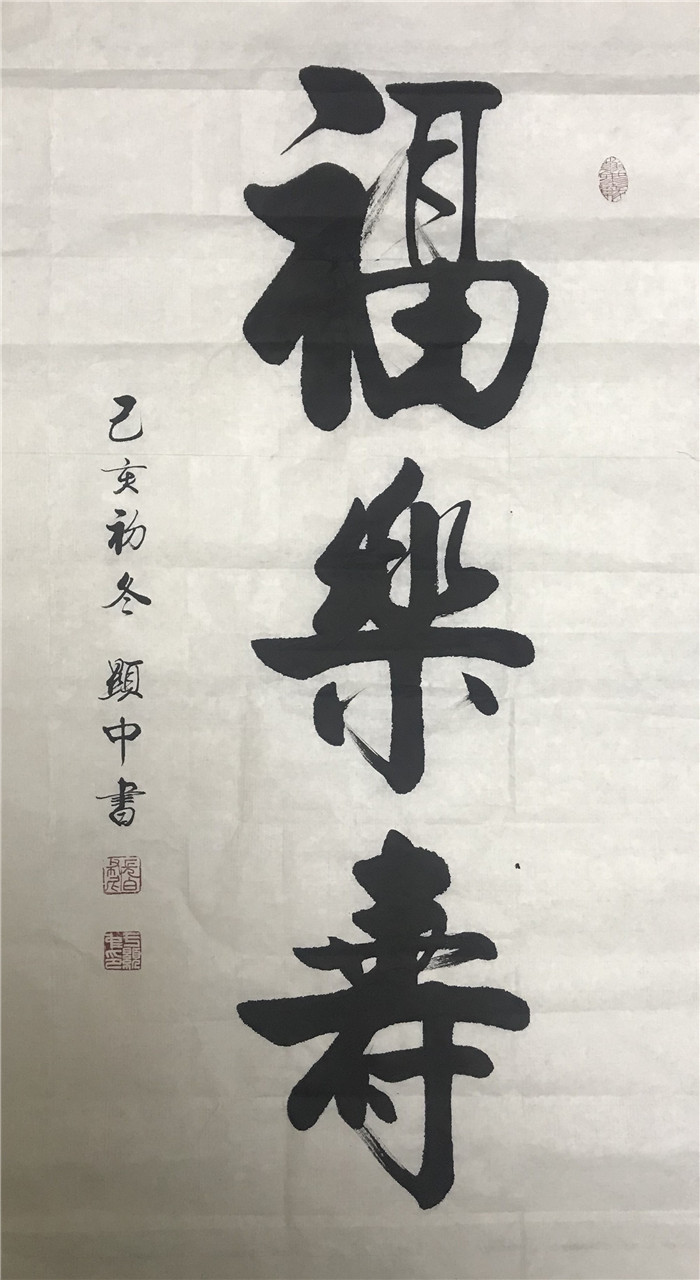 福樂壽
己亥初冬 顯中書